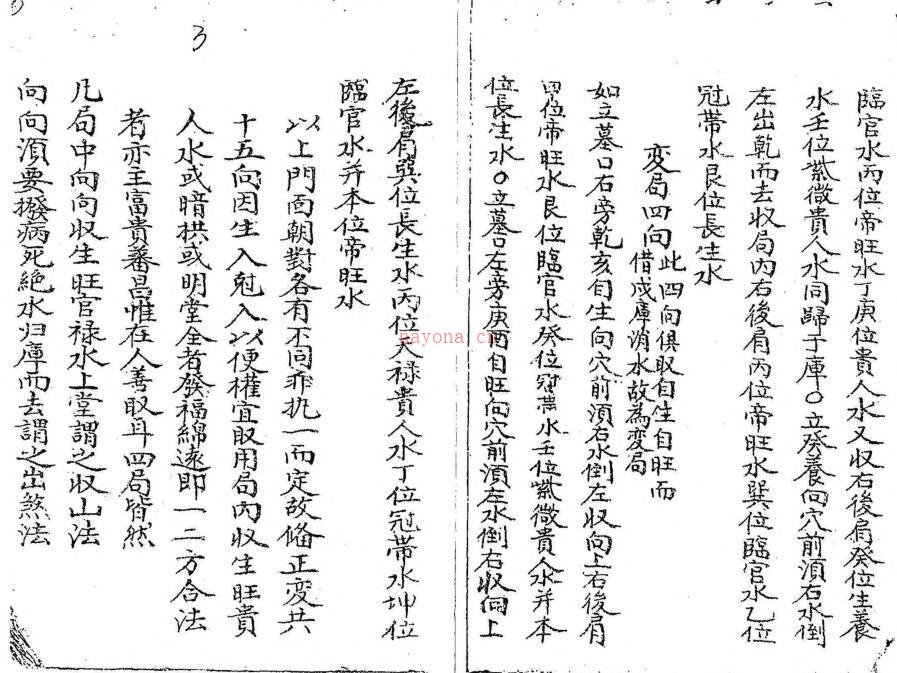 臨官水丙位帝旺水丁庚位貴人水又収右後肩癸位生養
水壬位紫微貴人水同歸于庫〇立癸養向穴前須右水倒
左出乾而去収局內右後肩丙位帝旺水巽位臨官水乙位
冠帶水艮位長生水
変局四向
此四向俱取自生自旺而
借戍庫消水故為変局
如立墓口右旁乾亥自生向穴前須右水倒左収向上右後肩
甲位帝旺水艮位臨官水癸位冠帶水壬位紫微貴人水并本
位長生水〇立墓口左旁庚酉自旺向穴前須左水倒右収向上
左後肩巽位長生水丙位天禄貴人水丁位冠帶水坤位
臨官水并本位帝旺水
以上門面朝對各有不同非执一而定故俻正変共
十五向因生入尅入以便權宜取用局內収生旺貴
人水或暗拱或明堂全者發福綿遠即一二方合法
者亦主富貴蕃昌惟在人善取耳四局皆然
凡局中向向収生旺官禄水上堂謂之収山法
向向須要撥病死絶水归庫而去謂之出煞法
3
nayona.cn